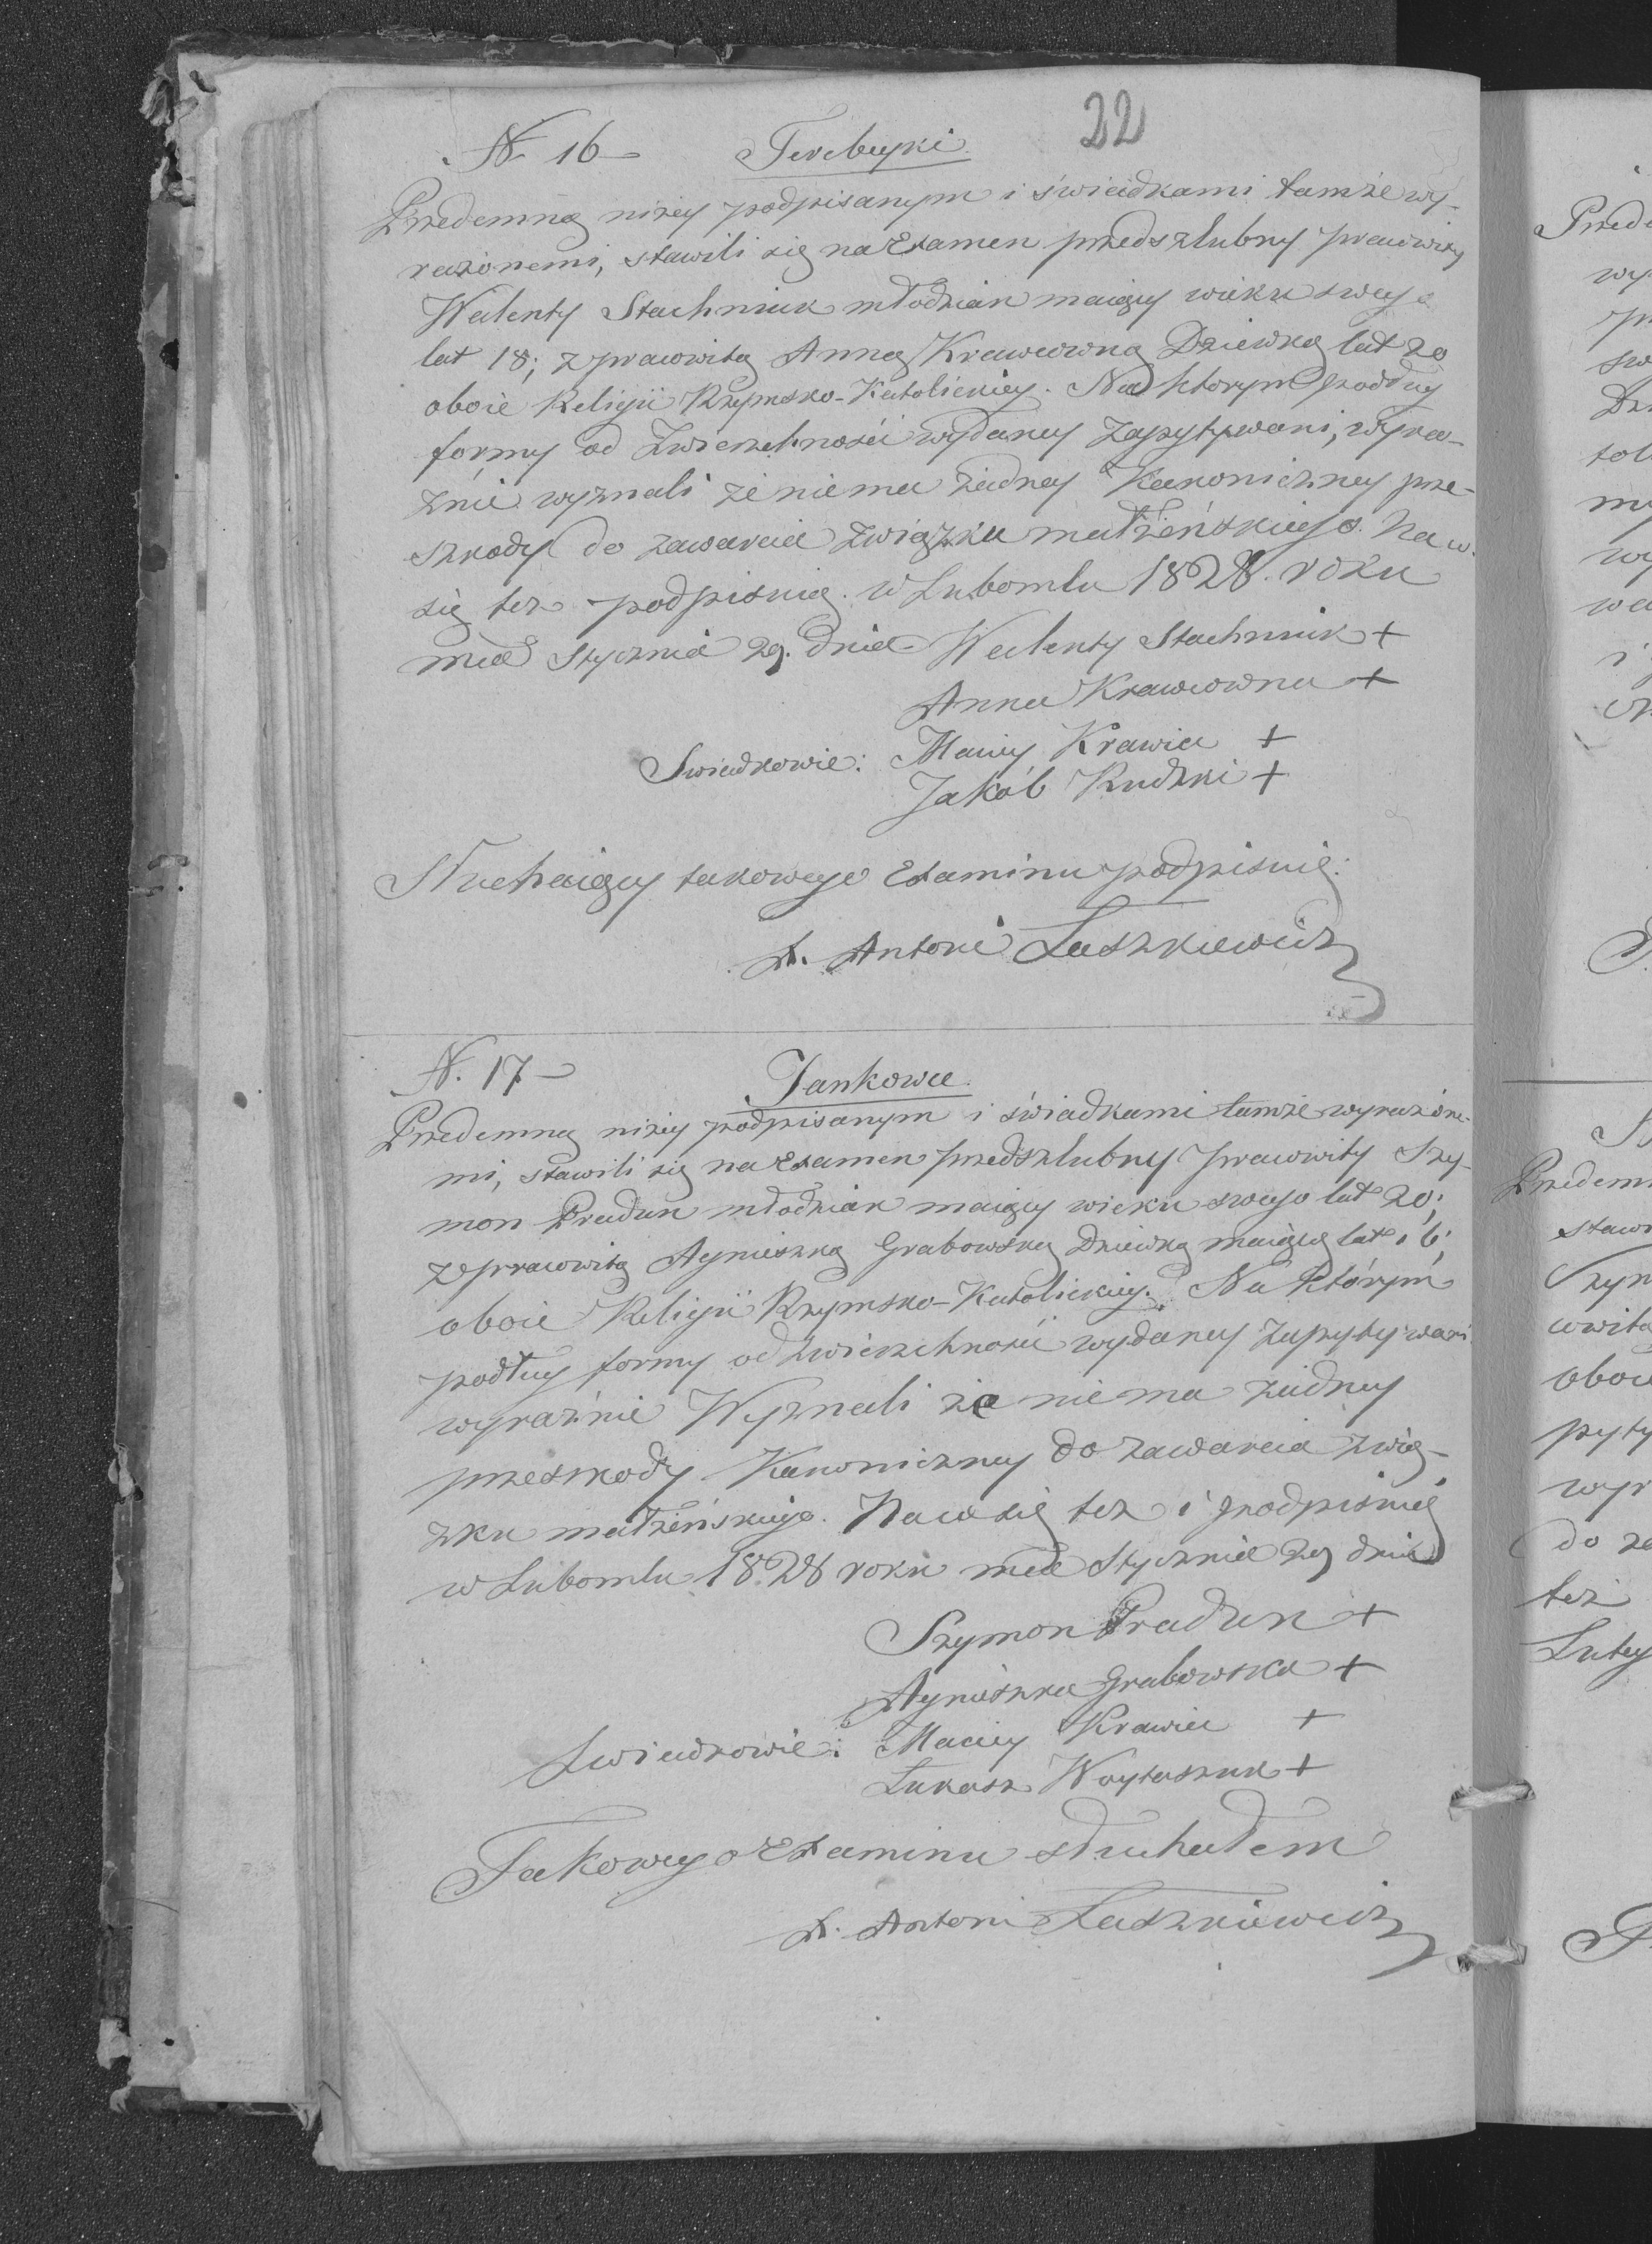 22
N. 16 Terebeyki
Przedemną niżey podpisanym i świadkami tamże wy-
rażonemi, stawili się na Examen przedszlubny prawowity
Walenty Stachniuk młodzian maiący wieku swego
lat 18; z prawowitą Anną Krawcowną Dziewką lat 20
oboie Religii Rzymsko-Katolickiey. Na ktorym podług
formy od Zwierzchności wydaney zapytywani, wyra-
źnie wyznali że niema żadney Kanoniczney prze-
szkody do zawarcia związku małżeńskiego. Na co
się też podpisuią. w Lubomlu 1828. roku
mca Stycznia 29. dnia Walenty Stachniuk +
Anna Krawcowna +
Swiadkowie: Maciey Krawiec +
Jakób Rudzki +
Słuchaiący takowego Examinu podpisuię:
X. Antoni Laszkiewicz
N. 17 Jankowce
Przedemną niżey podpisanym i świadkami tamże wyrażone-
mi, stawili się na Examen przedszlubny prawowity Szy-
mon Pradun młodzian maiący wieku swego lat 20;
z prawowitą Agnieszką Grabowską Dziewką maiącą lat 16;
oboie Religii Rzymsko-Katolickiey. Na którym
podług formy od zwierzchności wydaney zapytywani
wyraźnie Wyznali że niema żadney
przeszkody Kanoniczney do zawarcia zwią-
zku małżeńskiego. Na co się też i podpisuią
w Lubomlu 1828 roku mca Stycznia 29 dnia
Szymon Pradun +
Agnieszka Grabowska +
Swiadkowie: Maciey Krawiec +
Łukasz Woytaszuk +
Takowego Examinu słuchałem
X. Antoni Laszkiewicz